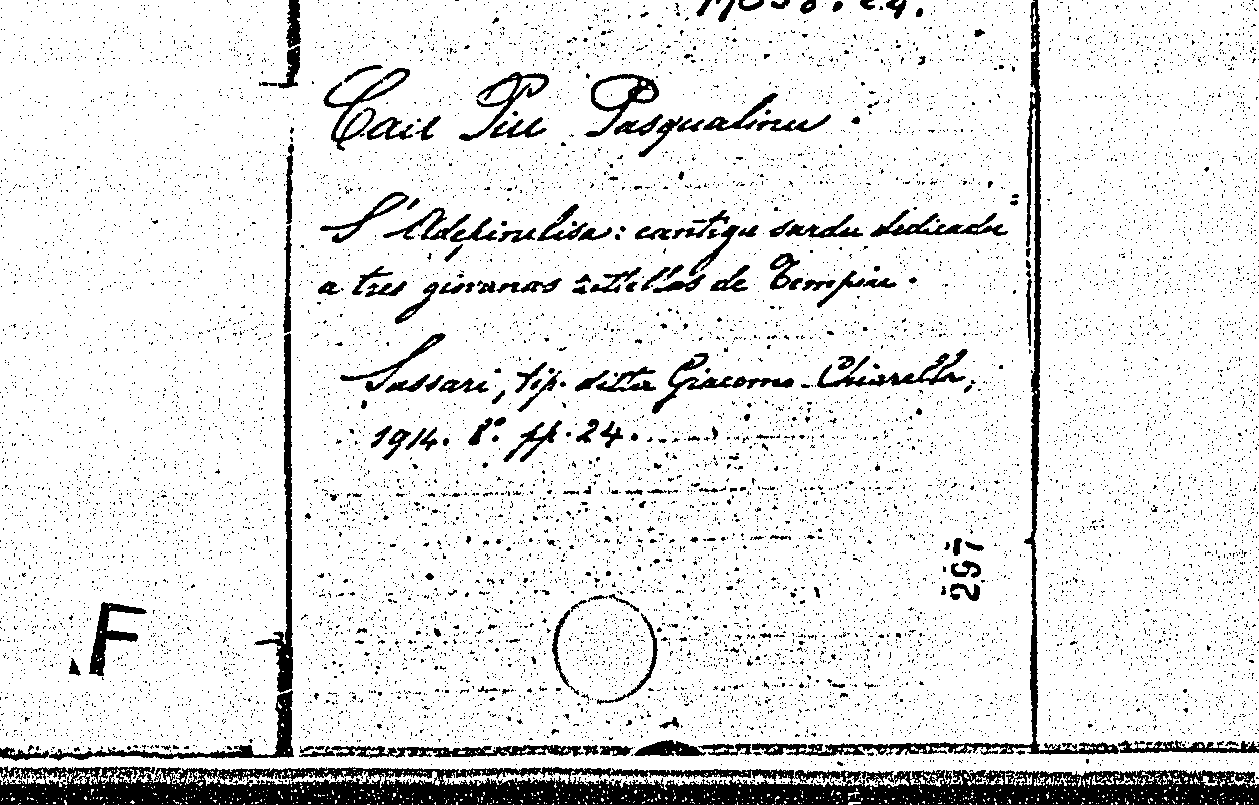 Caii Piu Pasqualinu.
S'Adepirulisa: cantigu sardu dedicadu
a tres ginanas zitellas de Tempiu.
Sassari, tip. ditta Giacomo Chiarella,
1914. 8º. pp. 24.
297
F